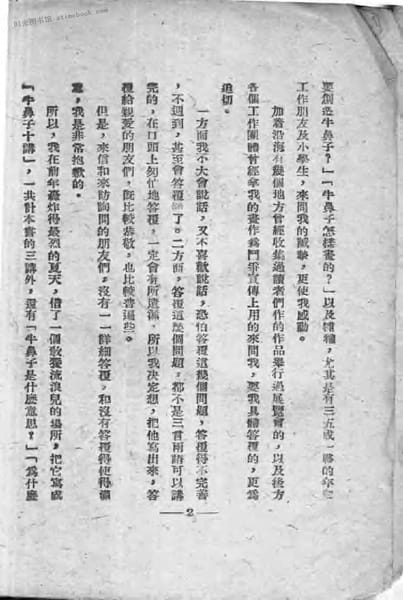 要創造牛鼻子？」「牛鼻子怎樣畫的？」以及種種，尤其是有三五成一夥的年
工作朋友及小學生，來問我的感動，更使我感動。
加着沿海有幾個地方曾經收集過讀者們作的作品舉行過展覽會的，以及後方
各個工作團體曾經拿我的畫作為鬥爭宣傳上用的來問我，要我具體答復的，更為
迫切。
一方面我不大會說話，又不喜歡說話，恐怕答覆這幾個問題，答覆得不完善
，不週到，甚至會答覆了。二方面，答覆這幾個問題，都不是三言兩語可以講
完的，在口頭上匆匆地答覆，一定會有所遺漏，所以我決定想，把他寫出來，答
覆給親愛的朋友們，既比較恭敬，也比較普遍些。
但是，來信和來訪詢問的朋友們，沒有一一詳細答覆，和沒有答覆得使得滿
意，我是非常抱歉的。
所以，我在前年轟炸得最烈的夏天，借了一個救濟流浪兒的場所，把它寫成
「牛鼻子十講」，一共計本書的三講外，還有「牛鼻子是什麼意思？」「為什麼
2